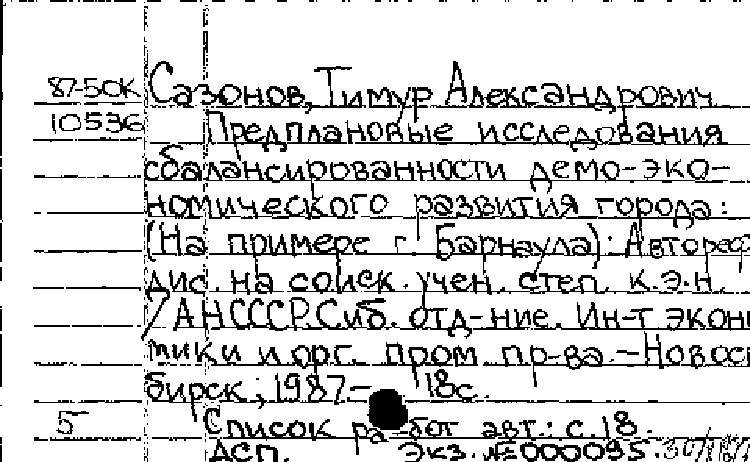 87-50к Сазонов, Тимур Александрович
10536 Предплановые исследования
сбалансированности демо-эко-
номического развития города:
(На примере г. Барнаула): Автореф
дис. на соиск. учен. степ. к.э.н.
/ АН СССР. Сиб. отд-ние. Ин-т эконо
мики и орг. пром. пр-ва. - Новоси
бирск, 1987. - 18с.
5 Список работ авт.: с.18.
ДСП. Экз. № 000095.